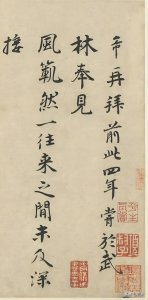 芾再拜前此四年嘗於武
林奉見
風範然一往來之間未及深
接